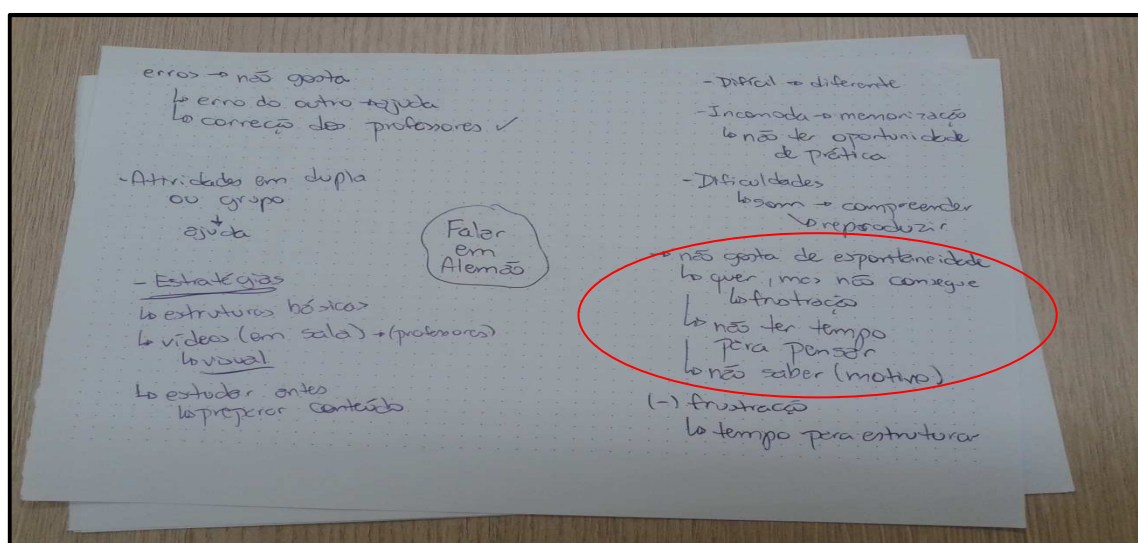 erros → não gosta
↳ erro do outro → ajuda
↳ correção dos professores ✓
- Atividades em dupla
ou grupo
↓
ajuda
- Estratégias
↳ estruturas básicas
↳ vídeos (em sala) → (professores)
↳ visual
↳ estudar antes
↳ preparar conteúdo
Falar
em
Alemão
- Difícil → diferente
- Incomoda → memorização
↳ não ter oportunidade
de prática
- Dificuldades
↳ som → compreender
↘ reproduzir
→ não gosta de espontaneidade
↳ quer, mas não consegue
↳ frustração
↳ não ter tempo
para pensar
↳ não saber (motivo)
(-) frustração
↳ tempo para estruturar